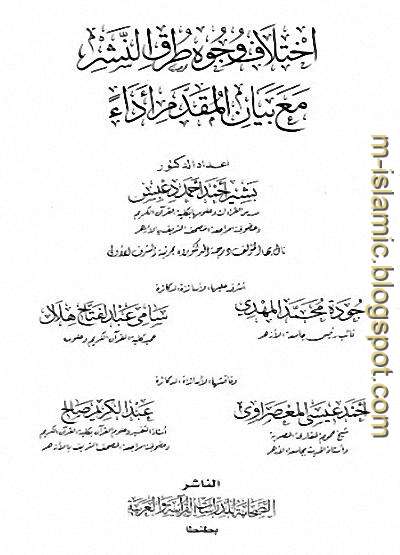 اختلاف وجوه طرق النشر
مع بيان المقدم أداء
إعداد الدكتور
بشير أحمد أحمد دعبس
مدرس القراءات وعلومها بكلية القرآن الكريم
وعضو لجنة مراجعة المصحف الشريف بالأزهر
نال بها المؤلف درجة الدكتوراه بمرتبة الشرف الأولى
أشرف عليها الأساتذة الدكاترة
جودة محمد المهدي
سامي عبد الفتاح هلال
نائب رئيس جامعة الأزهر
عميد كلية القرآن الكريم وعلومه
وناقشها الأساتذة الدكاترة
أحمد عيسى المعصراوي
عبد الكريم صالح
شيخ عموم المقارئ المصرية
أستاذ التفسير وعلوم القرآن بكلية القرآن الكريم
وأستاذ الحديث بجامعة الأزهر
وعضو لجنة مراجعة المصحف الشريف بالأزهر
الناشر
الصحابة للدراسات القرآنية والعربية
بطنطا
m-islamic.blogspot.com